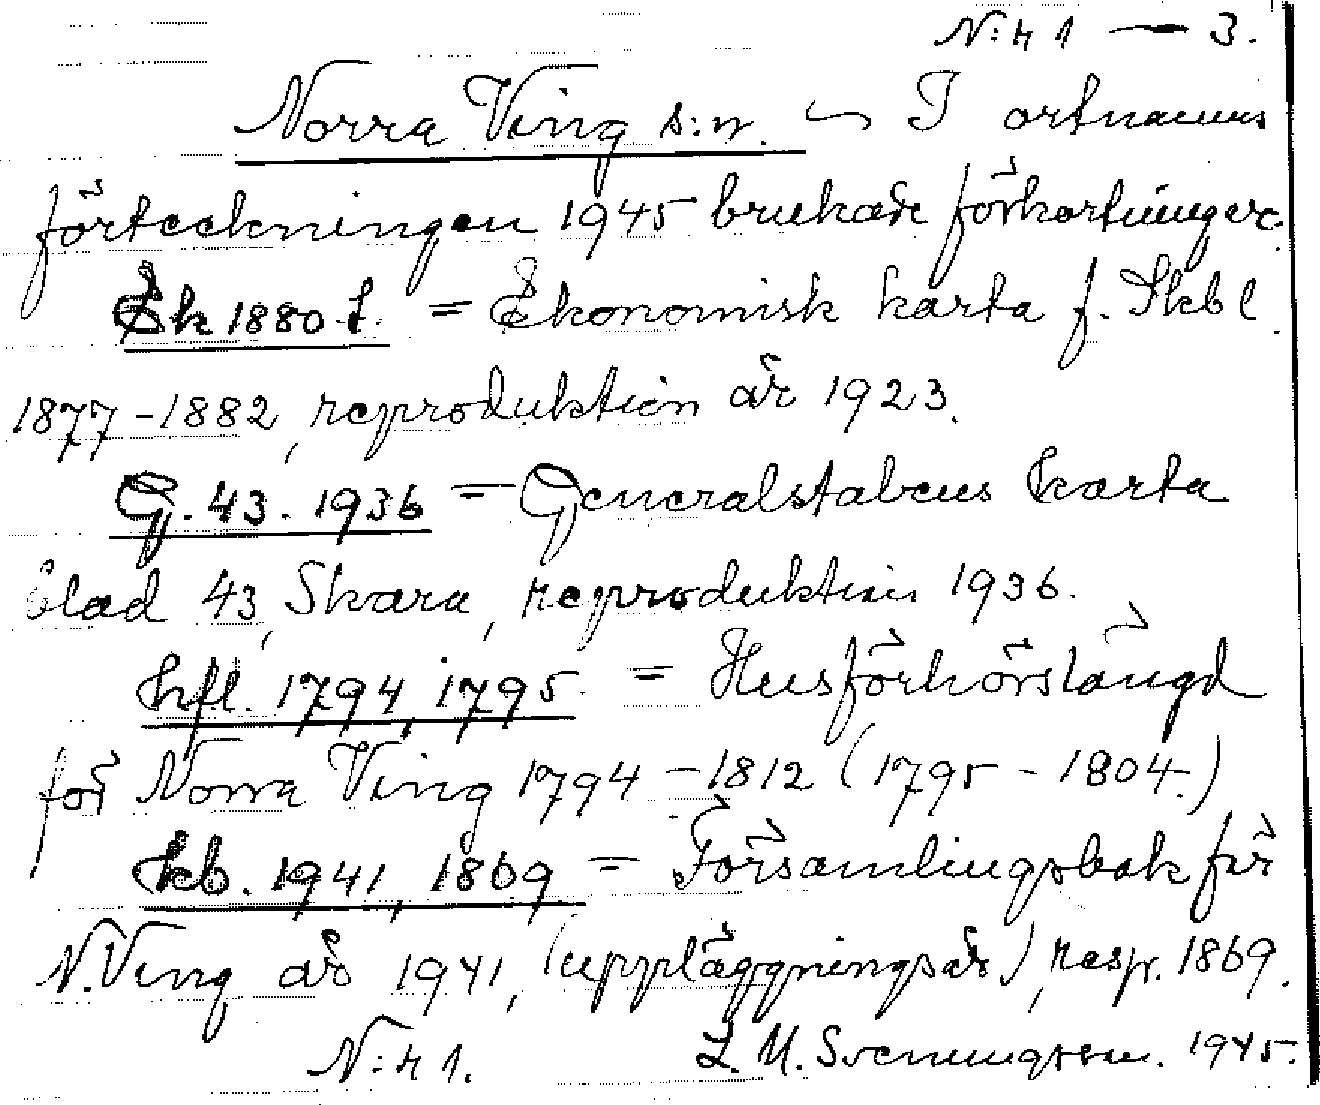 N:r 1 — 3.
Norra Ving s:n. ~ I ortnamns
förteckningen 1945 brukade förkortningar.
Ek 1880 t. = Ekonomisk karta f. Skbl.
1877-1882, reproduktion år 1923.
G. 43. 1936 = Generalstabens karta
blad 43, Skara, reproduktion 1936.
hfl. 1794, 1795 = Husförhörslängd
för Norra Ving 1794-1812 (1795-1804.)
kb. 1941, 1869 = Församlingsbok för
N. Ving år 1941, (uppläggningsår), resp. 1869.
N:r 1. L. M. Svenungsson. 1945.